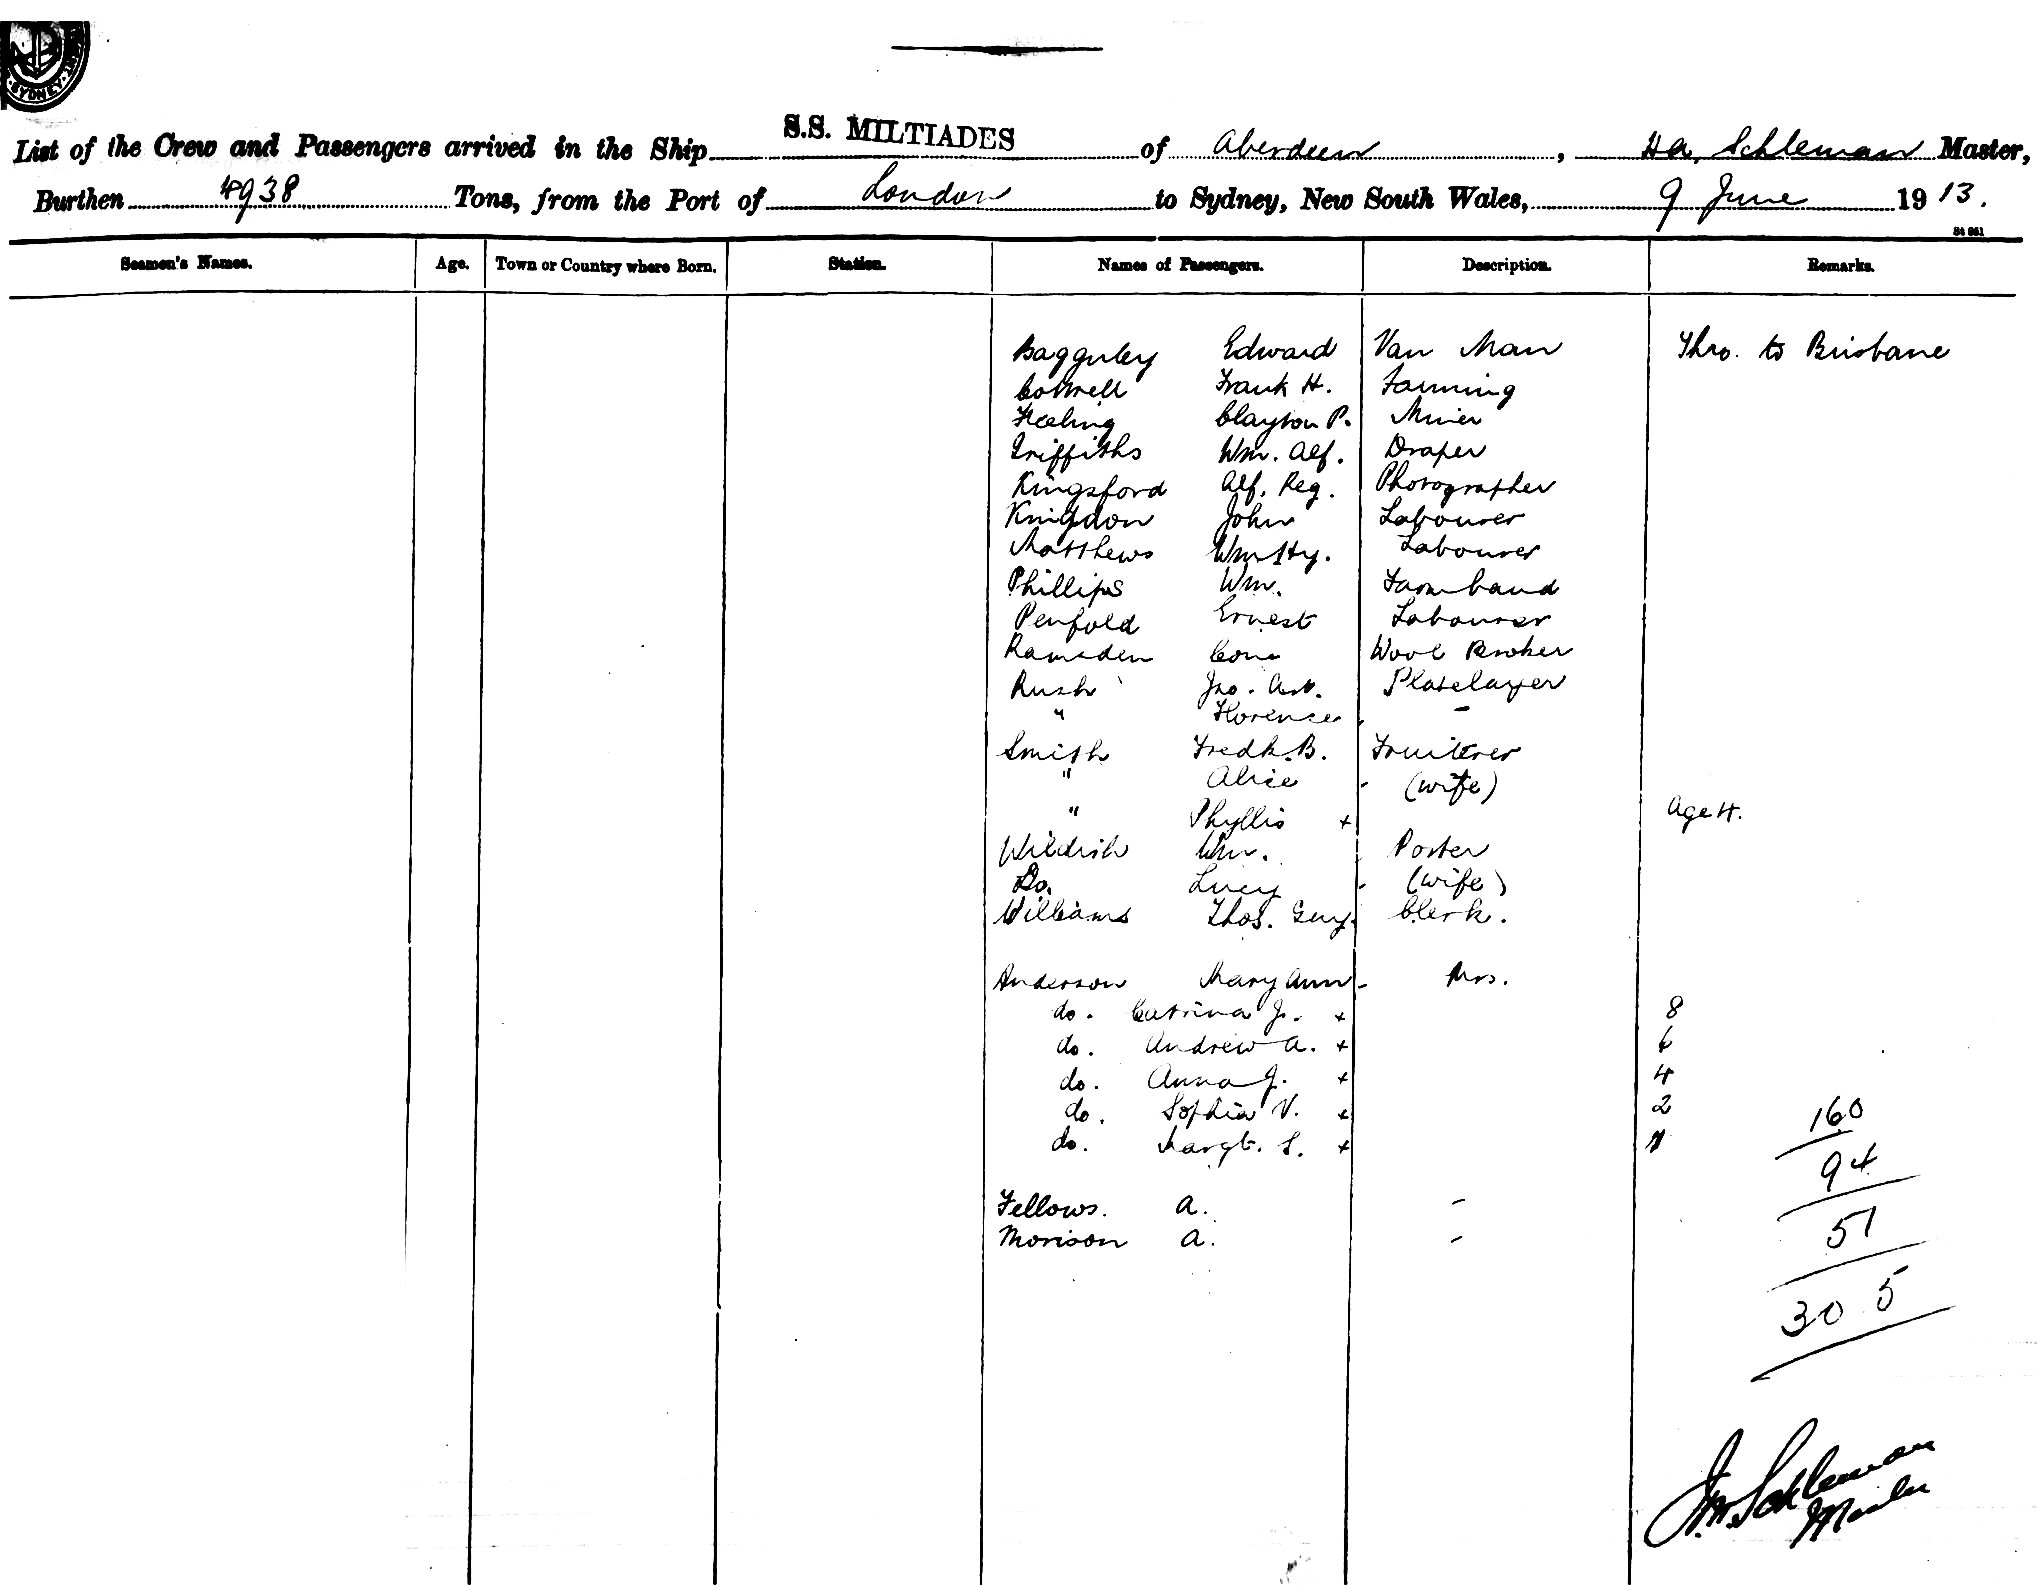 SYDNEY
S.S. MILTIADES
List of the Crew and Passengers arrived in the Ship of Aberdeen, Ha. Schleman Master,
Burthen 4938 Tons, from the Port of London to Sydney, New South Wales, 9 June 1913.
Seamen's Names. Age. Town or Country where Born. Station. Names of Passengers. Description. Remarks.
Bagguley Edward Van Man Thro. to Brisbane
Cottrell Frank H. Farming
Feeling Clayton P. Miner
Griffiths Wm. Alf. Draper
Kingsford Alf. Reg. Photographer
Kingdon John Labourer
Matthews Wm Hy. Labourer
Phillips Wm. Farm hand
Penfold Ernest Labourer
Ramsden Wool Broker
Rush Jno. Art. Platelayer
" Florence -
Smith Fredk. B. Fruiterer
" Alice - (wife)
" Phyllis + Age 4.
Wildish Wm. Porter
Do. Lucy - (wife)
Williams Thos. Guy. Clerk.
Anderson Mary Ann - Mrs.
do. Catrina J. + 8
do. Andrew A. + 6
do. Anna J. + 4
do. Sophia V. + 2
do. Margt. S. + 1
160
94
Fellows. A. -
Morison A. -
51
305
Schleman
Master